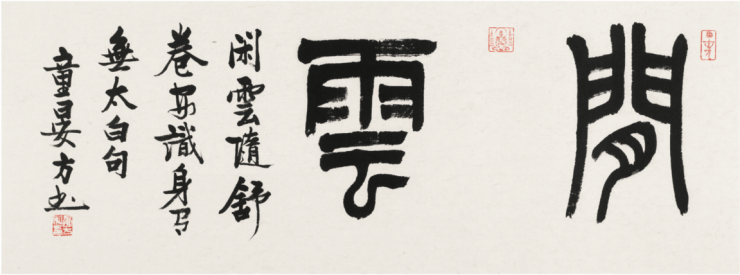 閒雲
闲雲隨舒
卷安識身有
無太白句
童晏方书